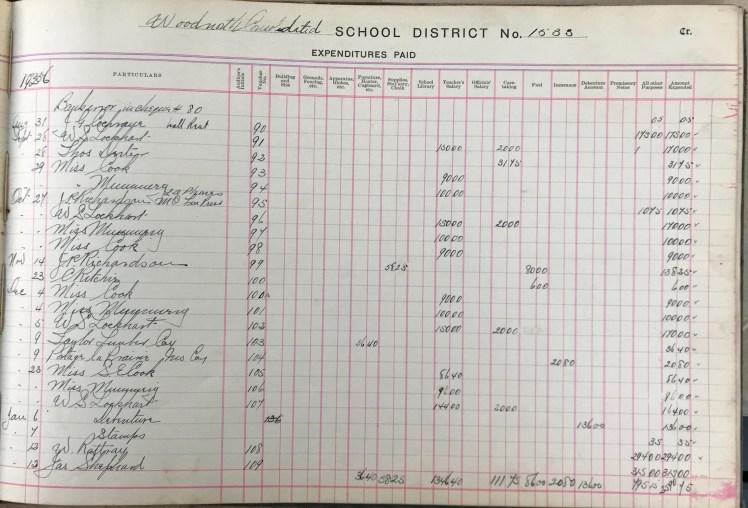 Woodnorth Consolidated SCHOOL DISTRICT No. 1588 Cr.
EXPENDITURES PAID
PARTICULARS Voucher No. Building and Site Grounds, Fencing, etc. Apparatus, Globes, etc. Furniture, Heater, Cupboard, etc. Supplies, Stationery, Chalk School Library Teacher's Salary Officials' Salary Care-taking Fuel Insurance Debenture Account Promissory Notes All other Purposes Amount Expended
in cheque # 80 05 05
31 Hall Rent 90 17500 17500
Sept 28 W S Lockhart 91 15000 2000 17000
28 Thos 92 3175 3175
29 Miss Cook 93 9000 9000
" Mummery 94 10000 10000
Oct 27 J R Richardson 95 1075 1075
W S Lockhart 96 15000 2000 17000
Miss Mummery 97 10000 10000
Miss Cook 98 9000 9000
Nov 14 J R Richardson 99 5825 8000 13825
23 J C Ritchie 100 600 600
Dec 4 Miss Cook 9000 9000
4 Miss Mummery 101 10000 10000
5 W S Lockhart 102 15000 2000 17000
9 Taylor Lumber Coy 103 3640 3640
9 Portage la Prairie Ins Coy 104 2080 2080
23 Miss S E Cook 105 8640 8640
Miss Mummery 106 9600
W S Lockhart 107 14400 2000 16400
Jan 6 Debenture 13600 13600
7 Stamps 35 35
12 W. Rattray 108 29400 29400
12 Jas Sheppard 109 31500 31500
3640 5825 134640 11175 8600 2080 13600